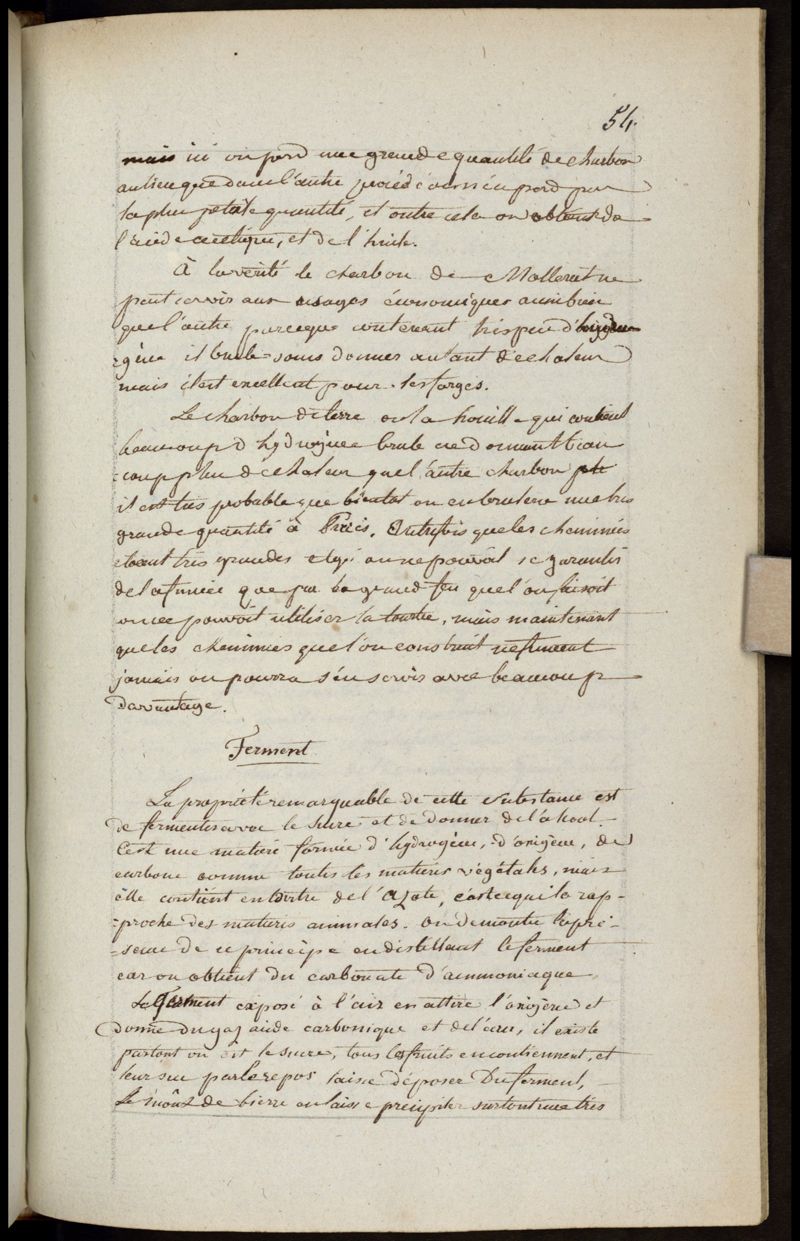 54.
mais ici on perd une grande quantité de charbon
au lieu que dans l'autre procédé on n'en perd pas
la plus petite quantité, et outre cela on obtient de
l'acide acétique, et de l'huile.
À la vérité le charbon de Mollerat ne
peut servir aux usages économiques aussi bien
que l'autre parceque contenant très peu d'hydro
-gène il brule sans donner autant de chaleur
mais il est excellent pour les forges.
Le charbon de terre ou la houille qui contient
beaucoup d'hydrogène brule en donnant beau
coup plus de chaleur que l'autre charbon
il est très probable que bientot on en brulera une très
grande quantité à Paris. Autrefois que les cheminées
étoient très grandes et qu'on ne pouvoit se garantir
de la fumée que par le grand feu que l'on faisoit
on ne pouvoit utiliser la tourbe, mais maintenant
que les cheminées que l'on construit ne fument
jamais on pourra s'en servir avec beaucoup
d'avantage.
Ferment
La propriété remarquable de cette substance est
de fermenter avec le sucre et de donner de l'alcool.
C'est une matière formée d'hydrogène, d'oxigène, de
carbone comme toutes les matières végétales, mais
elle contient en outre de l'azote, c'est ce qui la rap-
-proche des matières animales. On démontre la pré-
-sence de ce principe en distillant le ferment
car on obtient du carbonate d'ammoniaque.
Le Ferment exposé à l'air en attire l'oxigène et
donne du gaz acide carbonique et de l'eau, il existe
partout où est le sucre, tous les fruits en contiennent, et
leur suc par le repos laisse déposer du ferment,
Le moût de bierre en laisse précipiter surtout une très